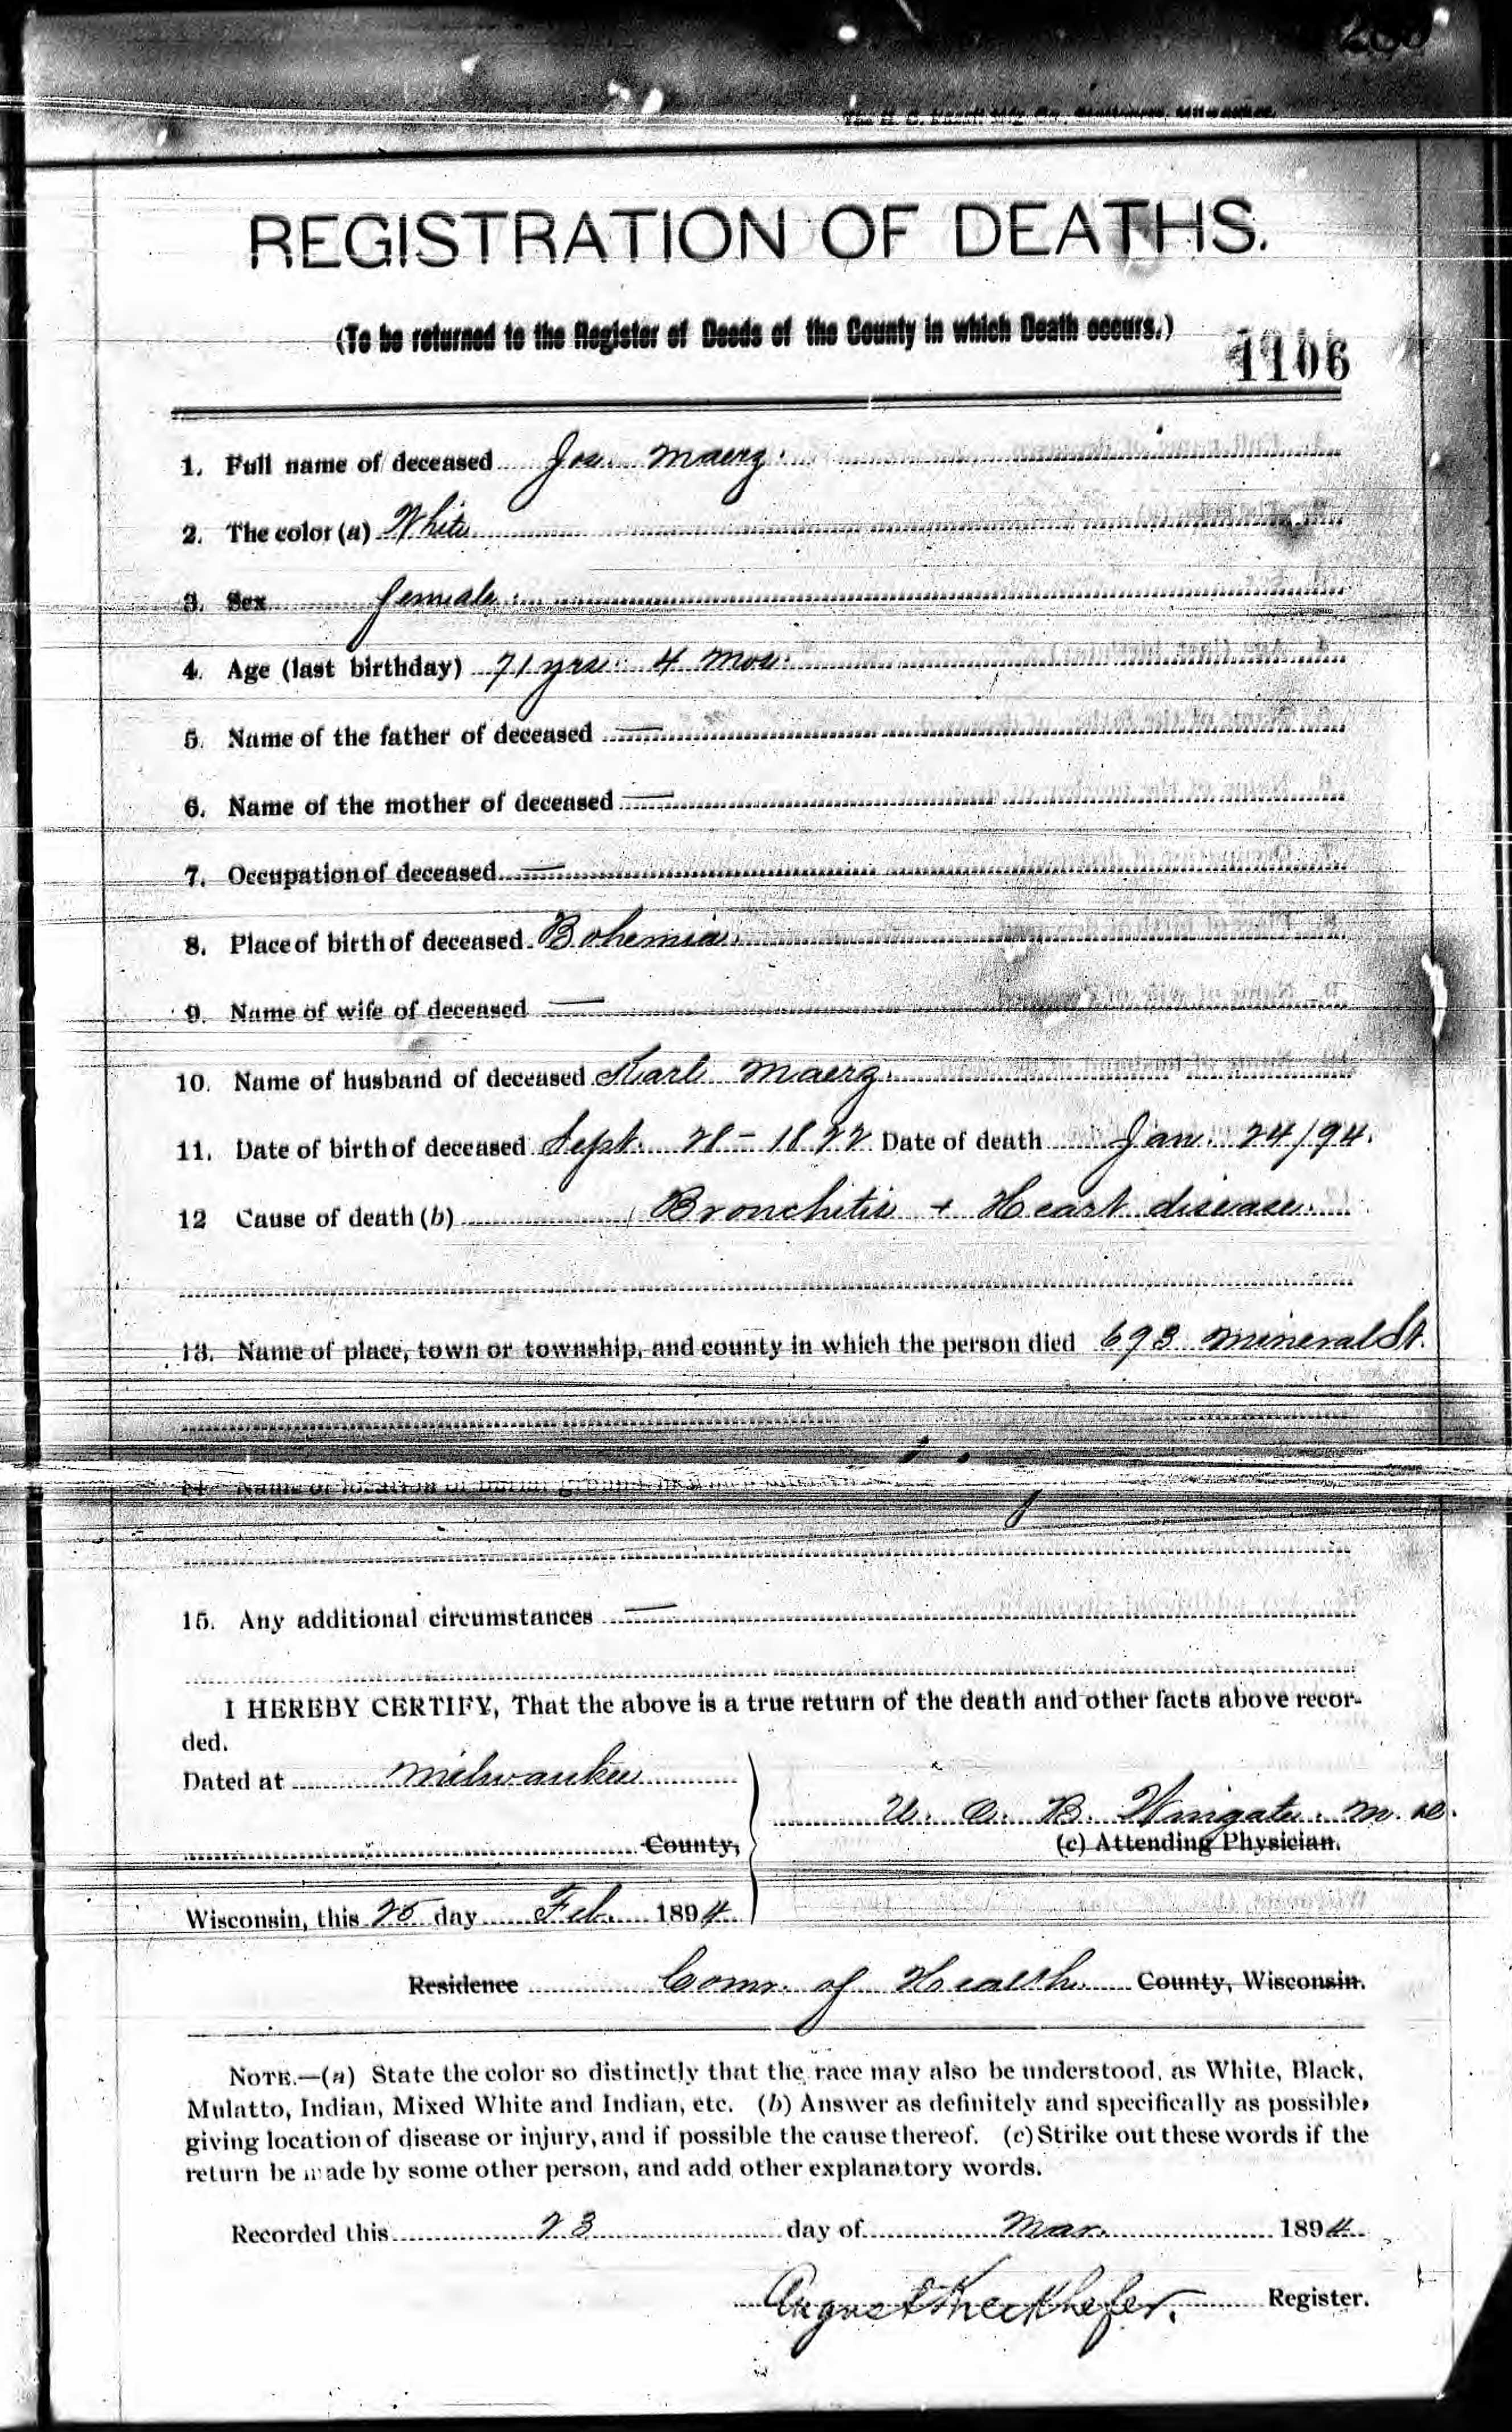 REGISTRATION OF DEATHS.
(To be returned to the Register of Deeds of the County in which Death occurs.)
1106
1. Full name of deceased Jos. Maerz
2. The color (a) White
3. Sex female
4. Age (last birthday) 71 yrs. 4 mos.
5. Name of the father of deceased —
6. Name of the mother of deceased —
7. Occupation of deceased —
8. Place of birth of deceased Bohemia
9. Name of wife of deceased —
10. Name of husband of deceased Karl Maerz
11. Date of birth of deceased Sept. 28 - 1822 Date of death Jan. 24/94.
12 Cause of death (b) Bronchitis + Heart disease.
13. Name of place, town or township, and county in which the person died 693 Mineral St.
14. Name or location of burial ground
15. Any additional circumstances —
I HEREBY CERTIFY, That the above is a true return of the death and other facts above recor-
ded.
Dated at Milwaukee
U. O. B. Wingate. M.D.
County,
(c) Attending Physician.
Wisconsin, this 25 day Feb. 1894
Residence Comr. of Health County, Wisconsin.
NOTE.—(a) State the color so distinctly that the race may also be understood, as White, Black,
Mulatto, Indian, Mixed White and Indian, etc. (b) Answer as definitely and specifically as possible,
giving location of disease or injury, and if possible the cause thereof. (c) Strike out these words if the
return be made by some other person, and add other explanatory words.
Recorded this 23 day of Mar. 1894.
August Kieckhefer. Register.